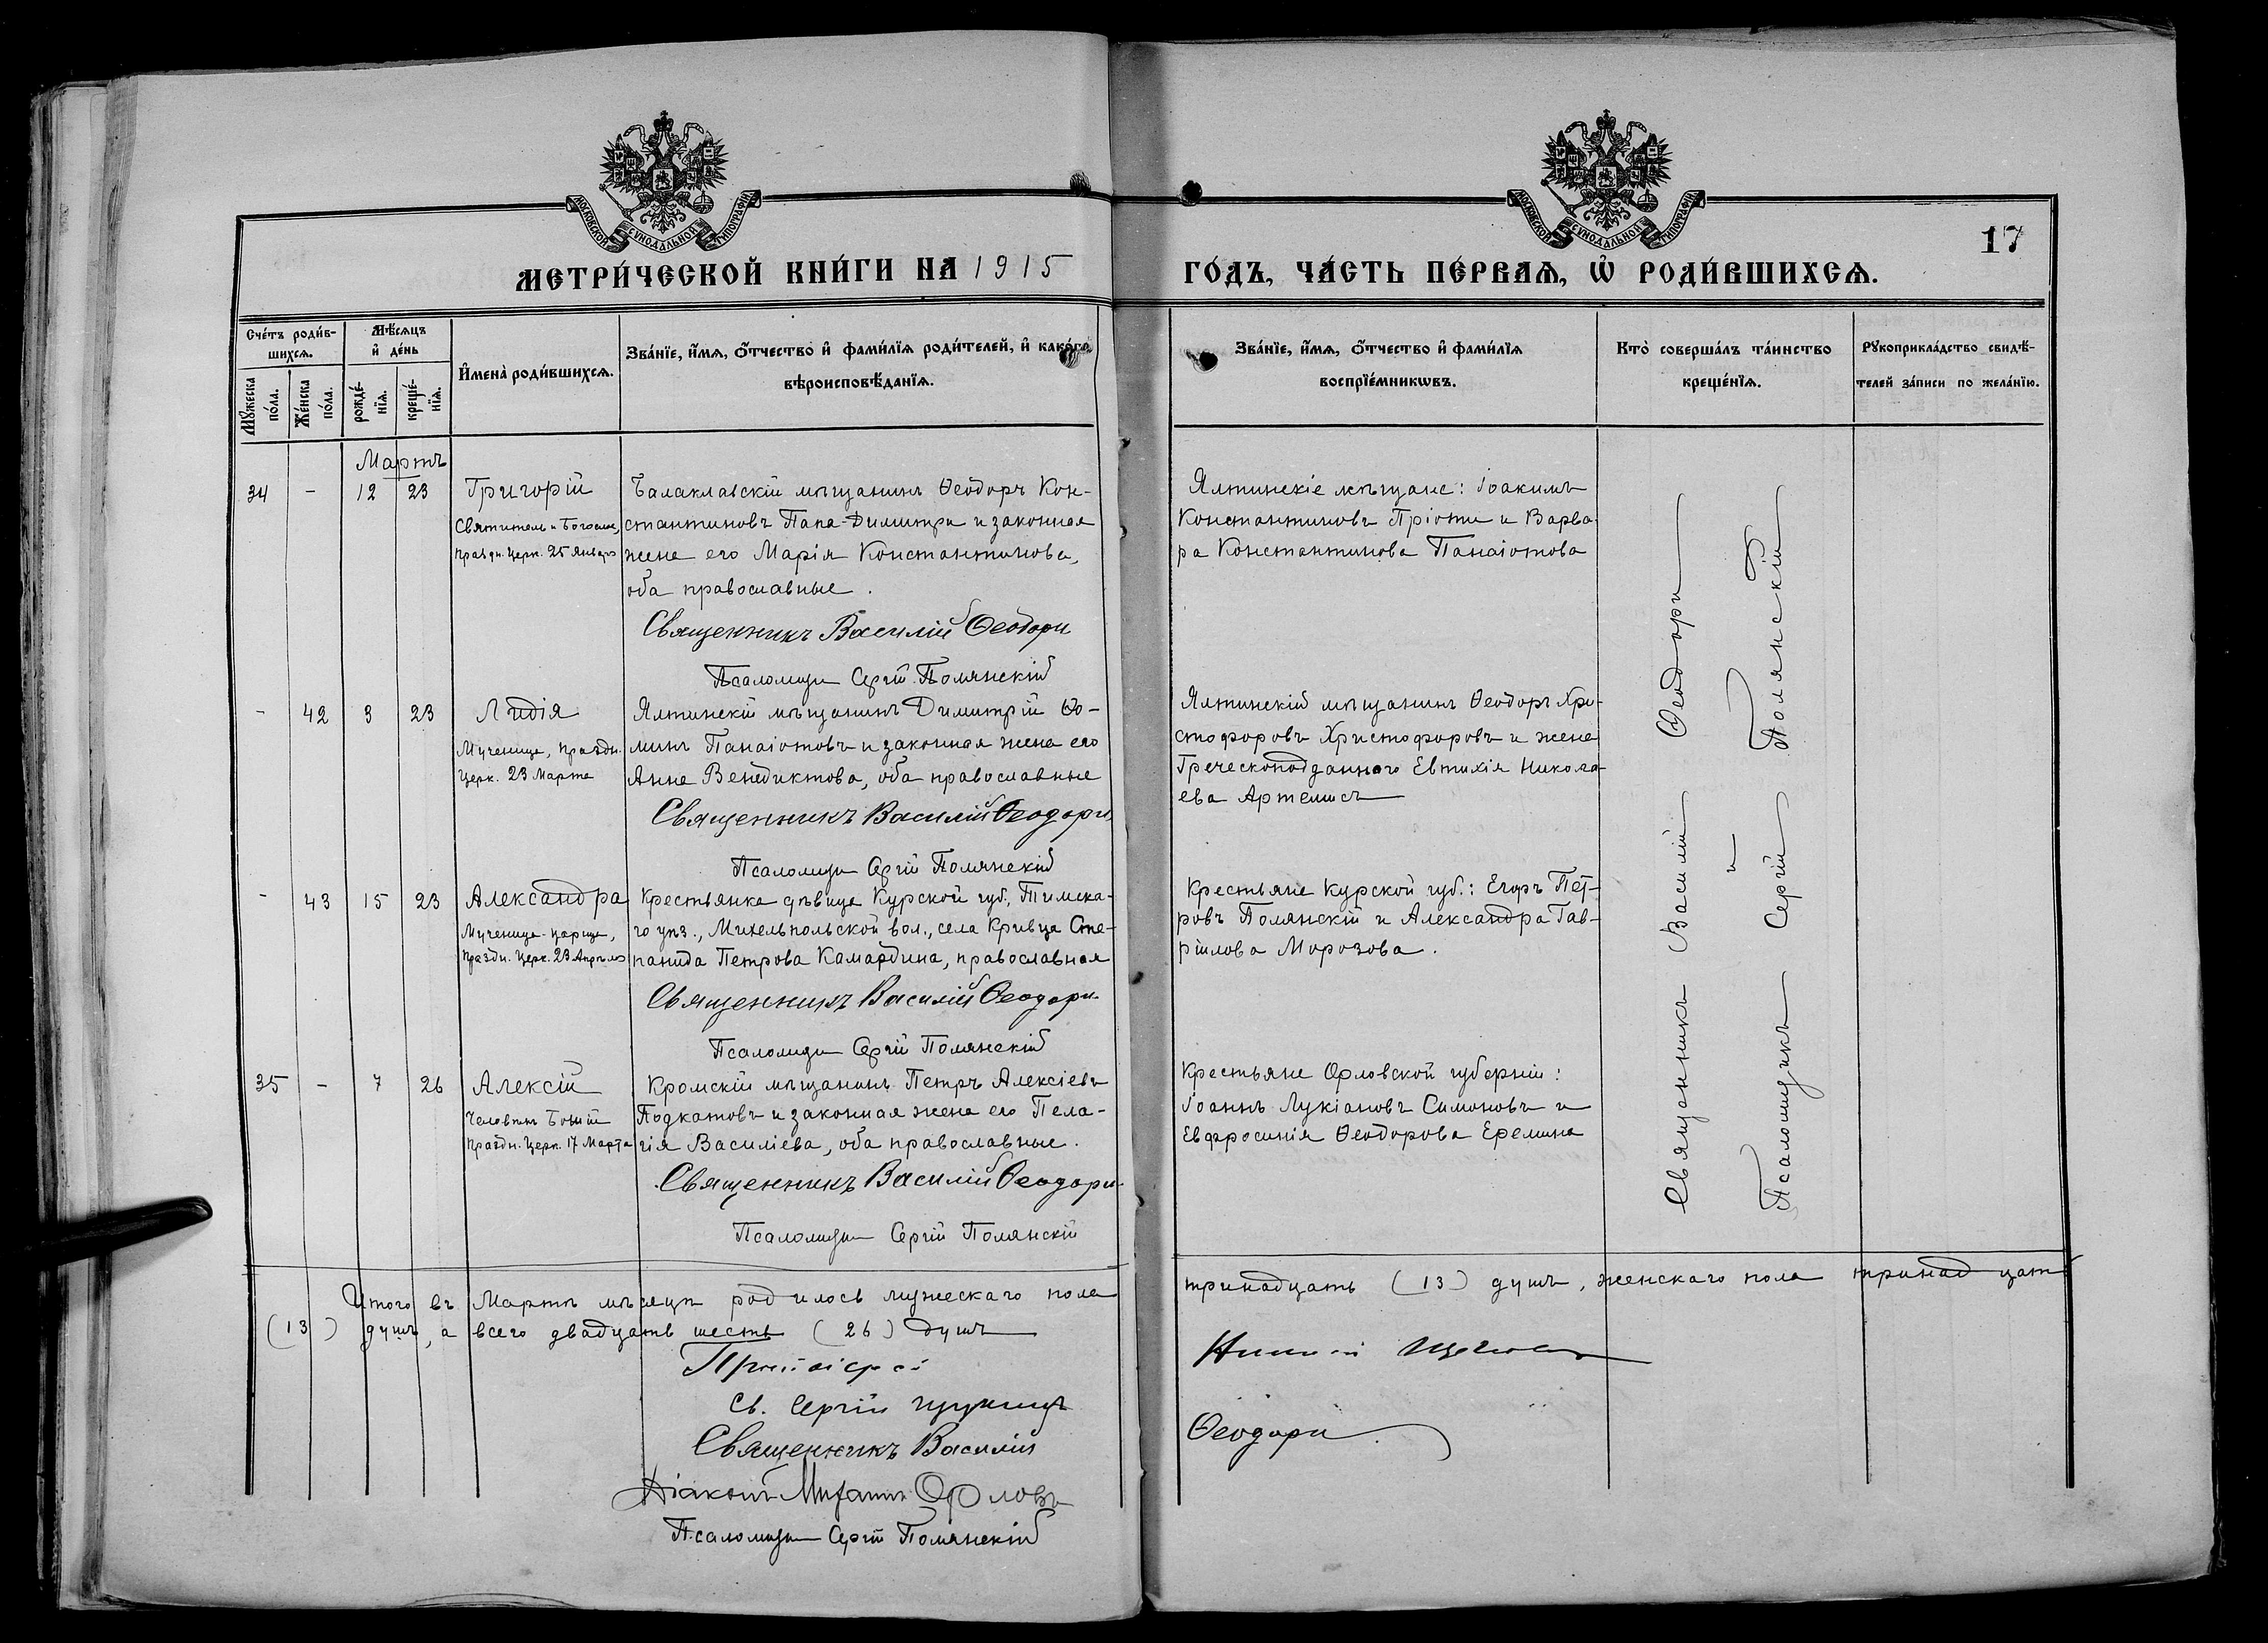 МОСКОВСКОЙ СѴНОДАЛЬНОЙ ТИПОГРАФІИ
МОСКОВСКОЙ СѴНОДАЛЬНОЙ ТИПОГРАФІИ
17
МЕТРИ́ЧЕСКОЙ КНИ́ГИ НА 1915
ГО́ДЪ, ЧА́СТЬ ПЕ́РВАѦ, Ѽ РОДИ́ВШИХСѦ.
Сче́тъ роди́в-
шихсѧ.
Мꙋ́жеска по́ла.
Же́нска по́ла.
Мѣ́сѧцъ и҆ де́нь
рожде́-нїѧ.
креще́-нїѧ.
И҆мена̀ роди́вшихсѧ.
Зва́нїе, и҆́мѧ, ѻ҆́тчество и҆ фами́лїѧ роди́телей, и҆ како́гѡ
вѣроисповѣ́данїѧ.
Зва́нїе, и҆́мѧ, ѻ҆́тчество и҆ фами́лїѧ
воспрїе́мникѡвъ.
Кто̀ соверша́лъ та́инство
креще́нїѧ.
Рꙋкоприкла́дство свидѣ́-
телей за́писи по жела́нїю.
Мартъ
34 - 12 23 Григорій
Святитель и Богослов,
праздн. церк. 25 Января
Балаклавскій мѣщанинъ Ѳеодоръ Кон-
стантиновъ Папа-Димитри и законная
жена его Марія Константинова,
оба православные.
Священникъ Василій Ѳеодори
Псаломщи Сергій Полянскій
Ялтинскіе мѣщане: Іоакимъ
Константиновъ Пріоти и Варва-
ра Константинова Панаіотова
- 42 3 23 Лидія
Мученица, праздн.
Церк. 23 Марта
Ялтинскій мѣщанинъ Димитрій Ѳо-
минъ Панаіотовъ и законная жена его
Анна Венедиктова, оба православные
Священникъ Василій Ѳеодори
Псаломщи Сергій Полянскій
Ялтинскій мѣщанинъ Ѳеодоръ Хри-
стофоровъ Христофоровъ и жена
Греческоподданнаго Евтихія Никола-
ева Артемисъ
- 43 15 23 Александра
Мученица-царица,
праздн. Церк. 23 Апрѣля
Крестьянка дѣвица Курской губ., Тимска-
го уѣз., Михельпольской вол., села Кривца Сте-
панида Петрова Камардина, православная
Священникъ Василій Ѳеодори
Псаломщи Сергій Полянскій
Крестьяне Курской губ.: Егоръ Пет-
ровъ Полянскій и Александра Гав-
ріилова Морозова.
35 - 7 26 Алексій
Человѣкъ Божій
Праздн. Церк. 17 Марта
Кромскій мѣщанинъ Петръ Алексіевъ
Подкатовъ и законная жена его Пела-
гія Василіева, оба православные.
Священникъ Василій Ѳеодори
Псаломщи Сергій Полянскій
Крестьяне Орловской губерніи:
Іоаннъ Лукіановъ Симоновъ и
Евфросинія Ѳеодорова Еремина
Священникъ Василій Ѳеодори
и
Псаломщикъ Сергій Полянскій
Итого въ Мартѣ мѣсяцѣ родилось мужескаго пола
тринадцать (13) душъ, женскаго пола тринадцать
(13) душъ, а всего двадцать шесть (26) душъ
Протоіерей
Св. Сергій Щукинъ
Священникъ Василій
Ѳеодори
Діаконъ Михаилъ Орловъ
Псаломщи Сергій Полянскій